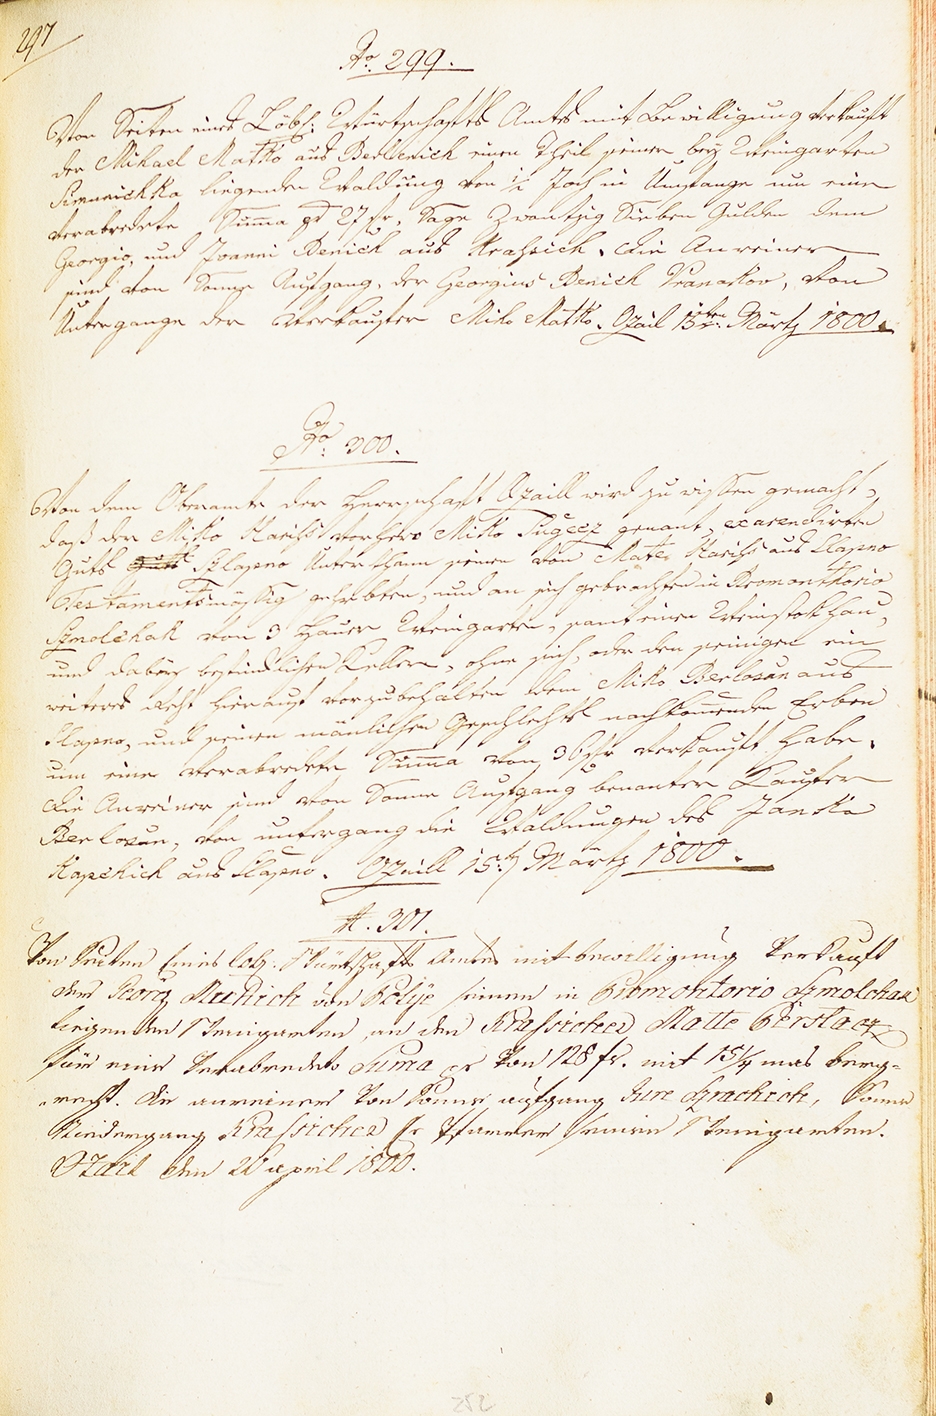 297
No. 299.
Von Seiten eines Löbl: Würtschafts Amts mit Bewilligung verkauft
der Mihael Matko aus Berlenich einen Theil seiner bey Weingarten
liegenden Waldung von 1/2 Joch in Umfange um eine
verabredete Summa pr 27 fr, Sage Zwantzig Sieben Gulden dem
Georgio, und Joanni Benich aus Krassich. die Anreiner
sind von Sonne Aufgang, der Georgius Benich Vranakov, von
Untergange der Verkaufer Miko Matko. Ozail 13ten Märtz 1800.
No. 300.
Von dem Oberamte der Herrschaft Ozaill wird zu wissen gemacht,
daß der Miko Harihs vorhero Miko genant, exarendirten
Guts Slapno Unterthann seinen von Mate Harihs aus Slapno
Testamentsmässig geerbten, und an sich gebrachten in Promonthorio
Szmolchak von 3 Hauer Weingarten, samt einen Weinstokhau,
und dabey befindlichen Keller, ohne sich, oder den seinigen ein
weiteres Recht hierauf vorzubehalten dem Miko Berlosan aus
Slapno, und seinen mänlichen Geschlechts nachkommenden Erben
um eine verabredete Summa von 36 fr verkauft habe.
die Anreiner sind von Sonne Aufgang benanter Kaufer
Berlosan, von untergang die Waldungen des Janko
Kapchich aus Slapno. Ozaill 15ten Märtz 1800.
N. 301.
Von Seiten Eines lobl. Würtschafts Amtes mit bewilligung Verkauft
der Georg Muhich von Polije seinen in Promontorio Szmolchak
liegenden Weingarten, an den Krassicher Matte
für eine Verabredete Suma pr Von 128 fr. mit 15/4 mas berg=
=recht. die anreiner Von Sonne aufgang Jure Szrachich, Sonne
Niedergang Krassicher Hr Pfarrer seinen Weingarten.
Ozail den 20 april 1800.
252